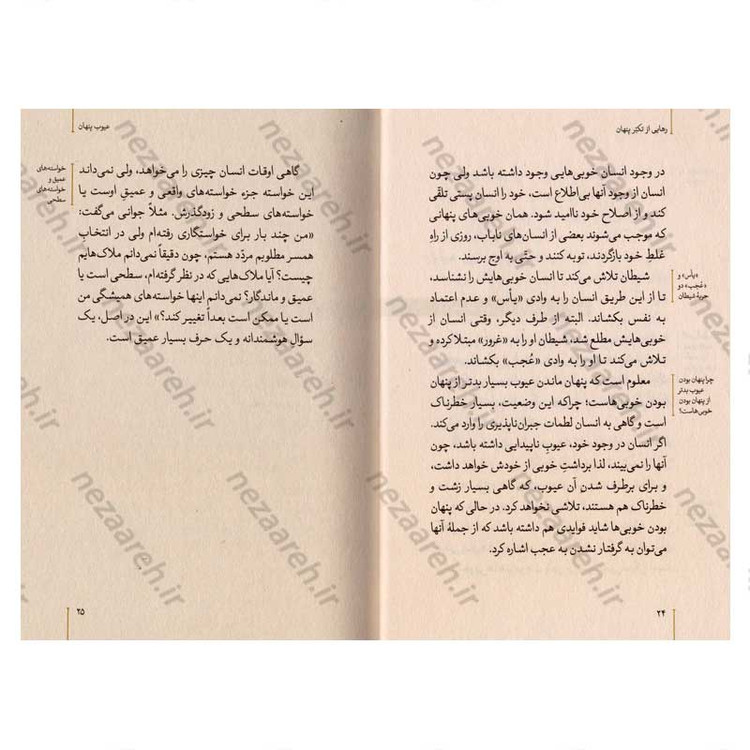 رهایی از تکبّر پنهان
در وجود انسان خوبی‌هایی وجود داشته باشد ولی چون
انسان از وجود آنها بی‌اطلاع است، خود را انسان پستی تلقّی
کند و از اصلاح خود ناامید شود. همان خوبی‌های پنهانی
که موجب می‌شوند بعضی از انسان‌های ناباب، روزی از راهِ
غلطِ خود بازگردند، توبه کنند و حتّی به اوج برسند.
«یأس» و
«عُجب» دو
حربهٔ شیطان
شیطان تلاش می‌کند تا انسان خوبی‌هایش را نشناسد،
تا از این طریق انسان را به وادی «یأس» و عدم اعتماد
به نفس بکشاند. البته از طرف دیگر، وقتی انسان از
خوبی‌هایش مطلع شد، شیطان او را به «غرور» مبتلا کرده و
تلاش می‌کند تا او را به وادی «عُجب» بکشاند.
چرا پنهان بودن
عیوب بدتر
از پنهان بودن
خوبی‌هاست؟
معلوم است که پنهان ماندن عیوب بسیار بدتر از پنهان
بودن خوبی‌هاست؛ چراکه این وضعیت، بسیار خطرناک
است و گاهی به انسان لطمات جبران‌ناپذیری را وارد می‌کند.
اگر انسان در وجود خود، عیوبِ ناپیدایی داشته باشد، چون
آنها را نمی‌بیند، لذا برداشتِ خوبی از خودش خواهد داشت،
و برای برطرف شدن آن عیوب، که گاهی بسیار زشت و
خطرناک هم هستند، تلاشی نخواهد کرد. در حالی که پنهان
بودن خوبی‌ها شاید فوایدی هم داشته باشد که از جملهٔ آنها
می‌توان به گرفتار نشدن به عجب اشاره کرد.
۲۴
عیوب پنهان
خواسته‌های
عمیق و
خواسته‌های
سطحی
گاهی اوقات انسان چیزی را می‌خواهد، ولی نمی‌داند
این خواسته جزء خواسته‌های واقعی و عمیقِ اوست یا
خواسته‌های سطحی و زودگذرش. مثلاً جوانی می‌گفت:
«من چند بار برای خواستگاری رفته‌ام ولی در انتخاب
همسر مطلوبم مردّد هستم، چون دقیقاً نمی‌دانم ملاک‌هایم
چیست؟ آیا ملاک‌هایی که در نظر گرفته‌ام، سطحی است یا
عمیق و ماندگار؟ نمی‌دانم اینها خواسته‌های همیشگی من
است یا ممکن است بعداً تغییر کند؟» این در اصل، یک
سؤالِ هوشمندانه و یک حرف بسیار عمیق است.
۲۵
nezaareh.ir
nezaareh.ir
nezaareh.ir
nezaareh.ir
nezaareh.ir
nezaareh.ir
nezaareh.ir
nezaareh.ir